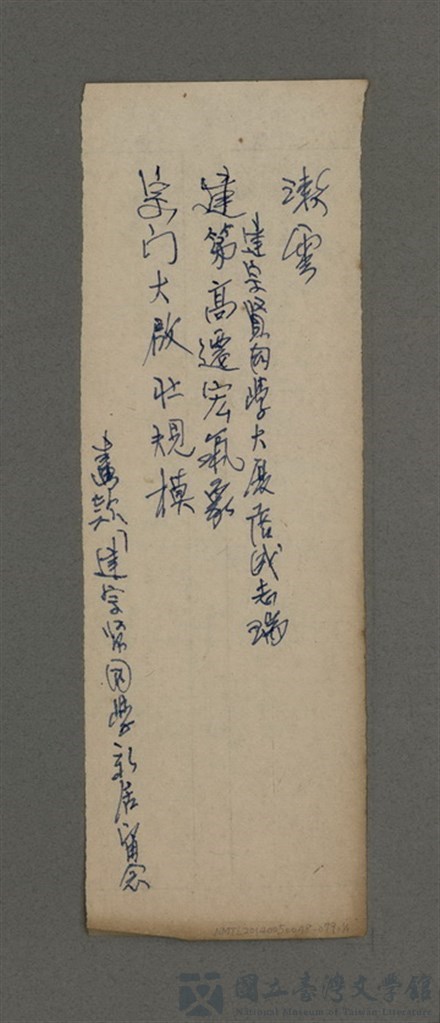 漱雲
建宗賢同學大厦落成志瑞
建第高遷宏氣象
宗门大啟壯規模
建宗賢同學新居留念
NMTL20140050048-079-1/1
國立臺灣文學館
National Museum of Taiwan Literature